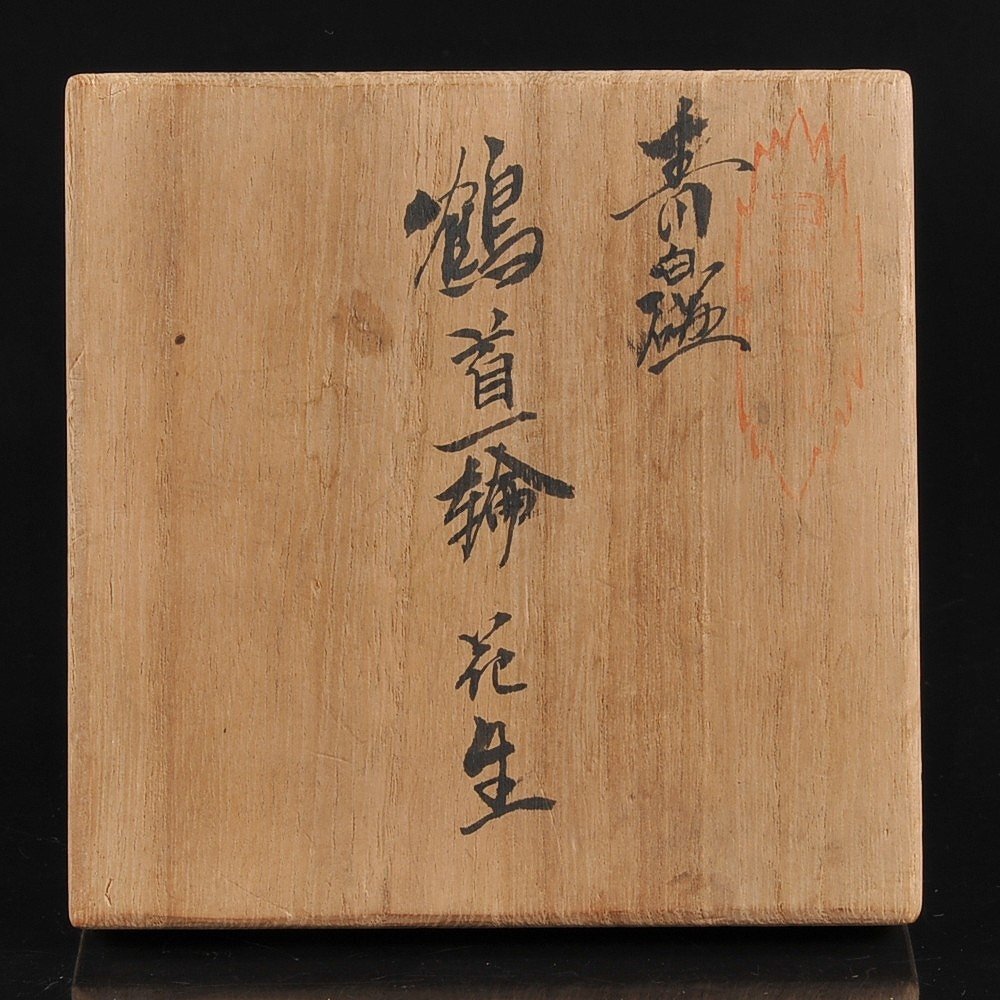 青白磁
鶴首一輪花生